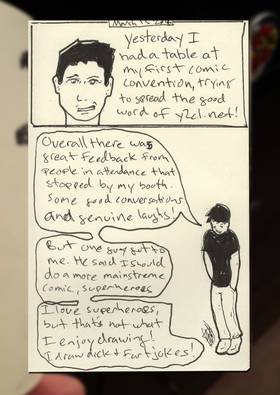 yesterday I
had a table at
my first comic
convention, trying
to spread the good
word of y2cl.net!
Overall there was
great feedback from
people in attendance that
stopped by my booth.
Some good conversations
and genuine laughs!
But one guy got to
me. He said I should
do a more mainstreme
comic, superheroes
I love superheroes,
but that's not what
I enjoy drawing!
I draw dick & fart jokes!